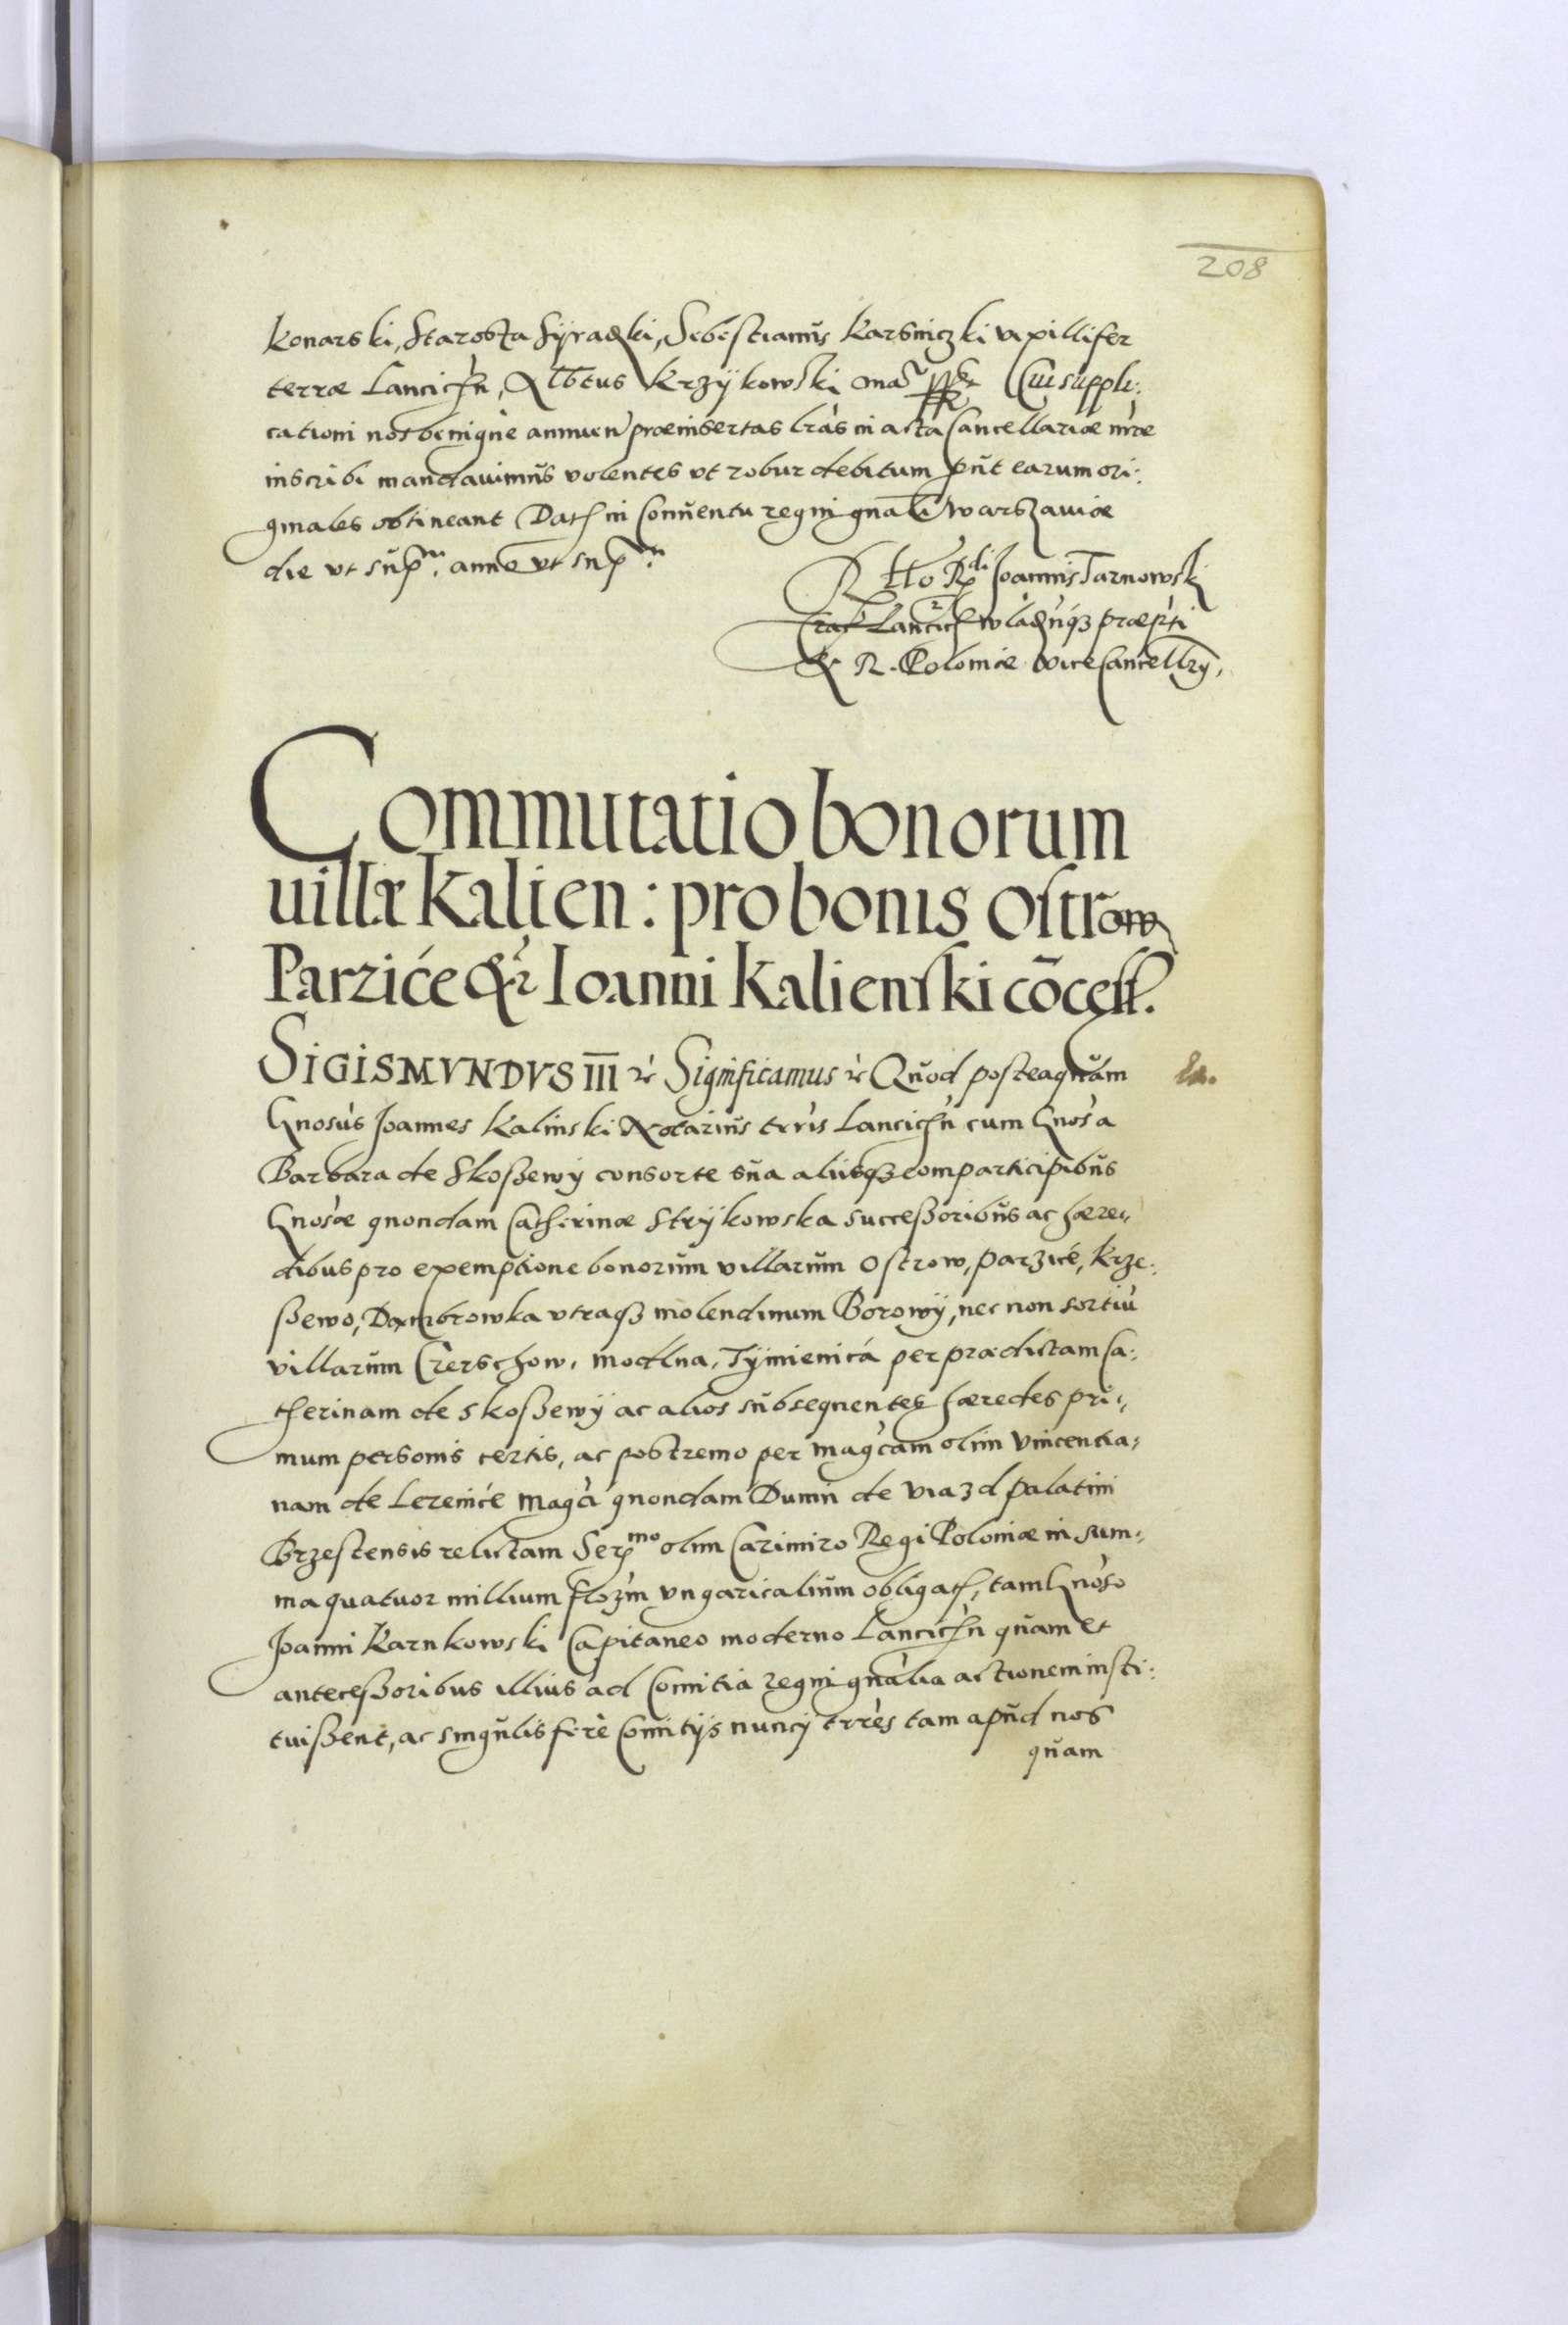 208
Konarski, Starosta Syradzki, Sebestianus Karsniczki vexillifer
terræ Lancicien, Albtus Krzykowski ma ppa Cui suppli:
cationi nos benigne annuen præinsertas lras in acta Cancellariæ nræ
inscribi mandauimus volentes vt robur debitum put earum ori:
ginales obtineant Dat in Conuentu regni gnali Warszauiæ
die vt sup. anno vt sup.
R tto Rdi Joannis Tarnowski
Wladq3 præpti
R. Poloniæ ViceCancellrij,
Commutatio bonorum
uillæ Kalien: pro bonis Ostrow
Parzice &r Ioanni Kalienski cõcess.
SIGISMVNDVS III &r Significamus &r Quod posteaquam
Gnosus Joannes Kalinski Notarius trris Lancicien cum Gnosa
Barbara de Skoßewy consorte sua aliisq3 comparticipibus
Gnosæ quondam Catherinæ Strykowska succeßoribus ac hære,,
dibus pro exemptione bonorum villarum Ostrow, Parzice, Krze:
ßewo, Dambrowka vtraq3 molendinum Borowy, nec non sortiu
villarum Czerschow, Modlna, Tymienica per prædictam Ca:
therinam de Skoßewy ac alios subsequentes hæredes pri,,
mum personis certis, ac postremo per magcam olim Vincentia,
nam de Lezenice Magci quondam Dunin de Viazd Palatini
Brzestensis relictam Sermo olim Cazimiro Regi Poloniæ in sum,
ma quatuor millium florm vngaricalium obligat, tam Gnoso
Joanni Karnkowski Capitaneo moderno Lancicien quam et
anteceßoribus illius ad Comitia regni gnalia actionem insti:
tuißent, ac singulis fere Comitijs nuncij trres tam apud nos
quam